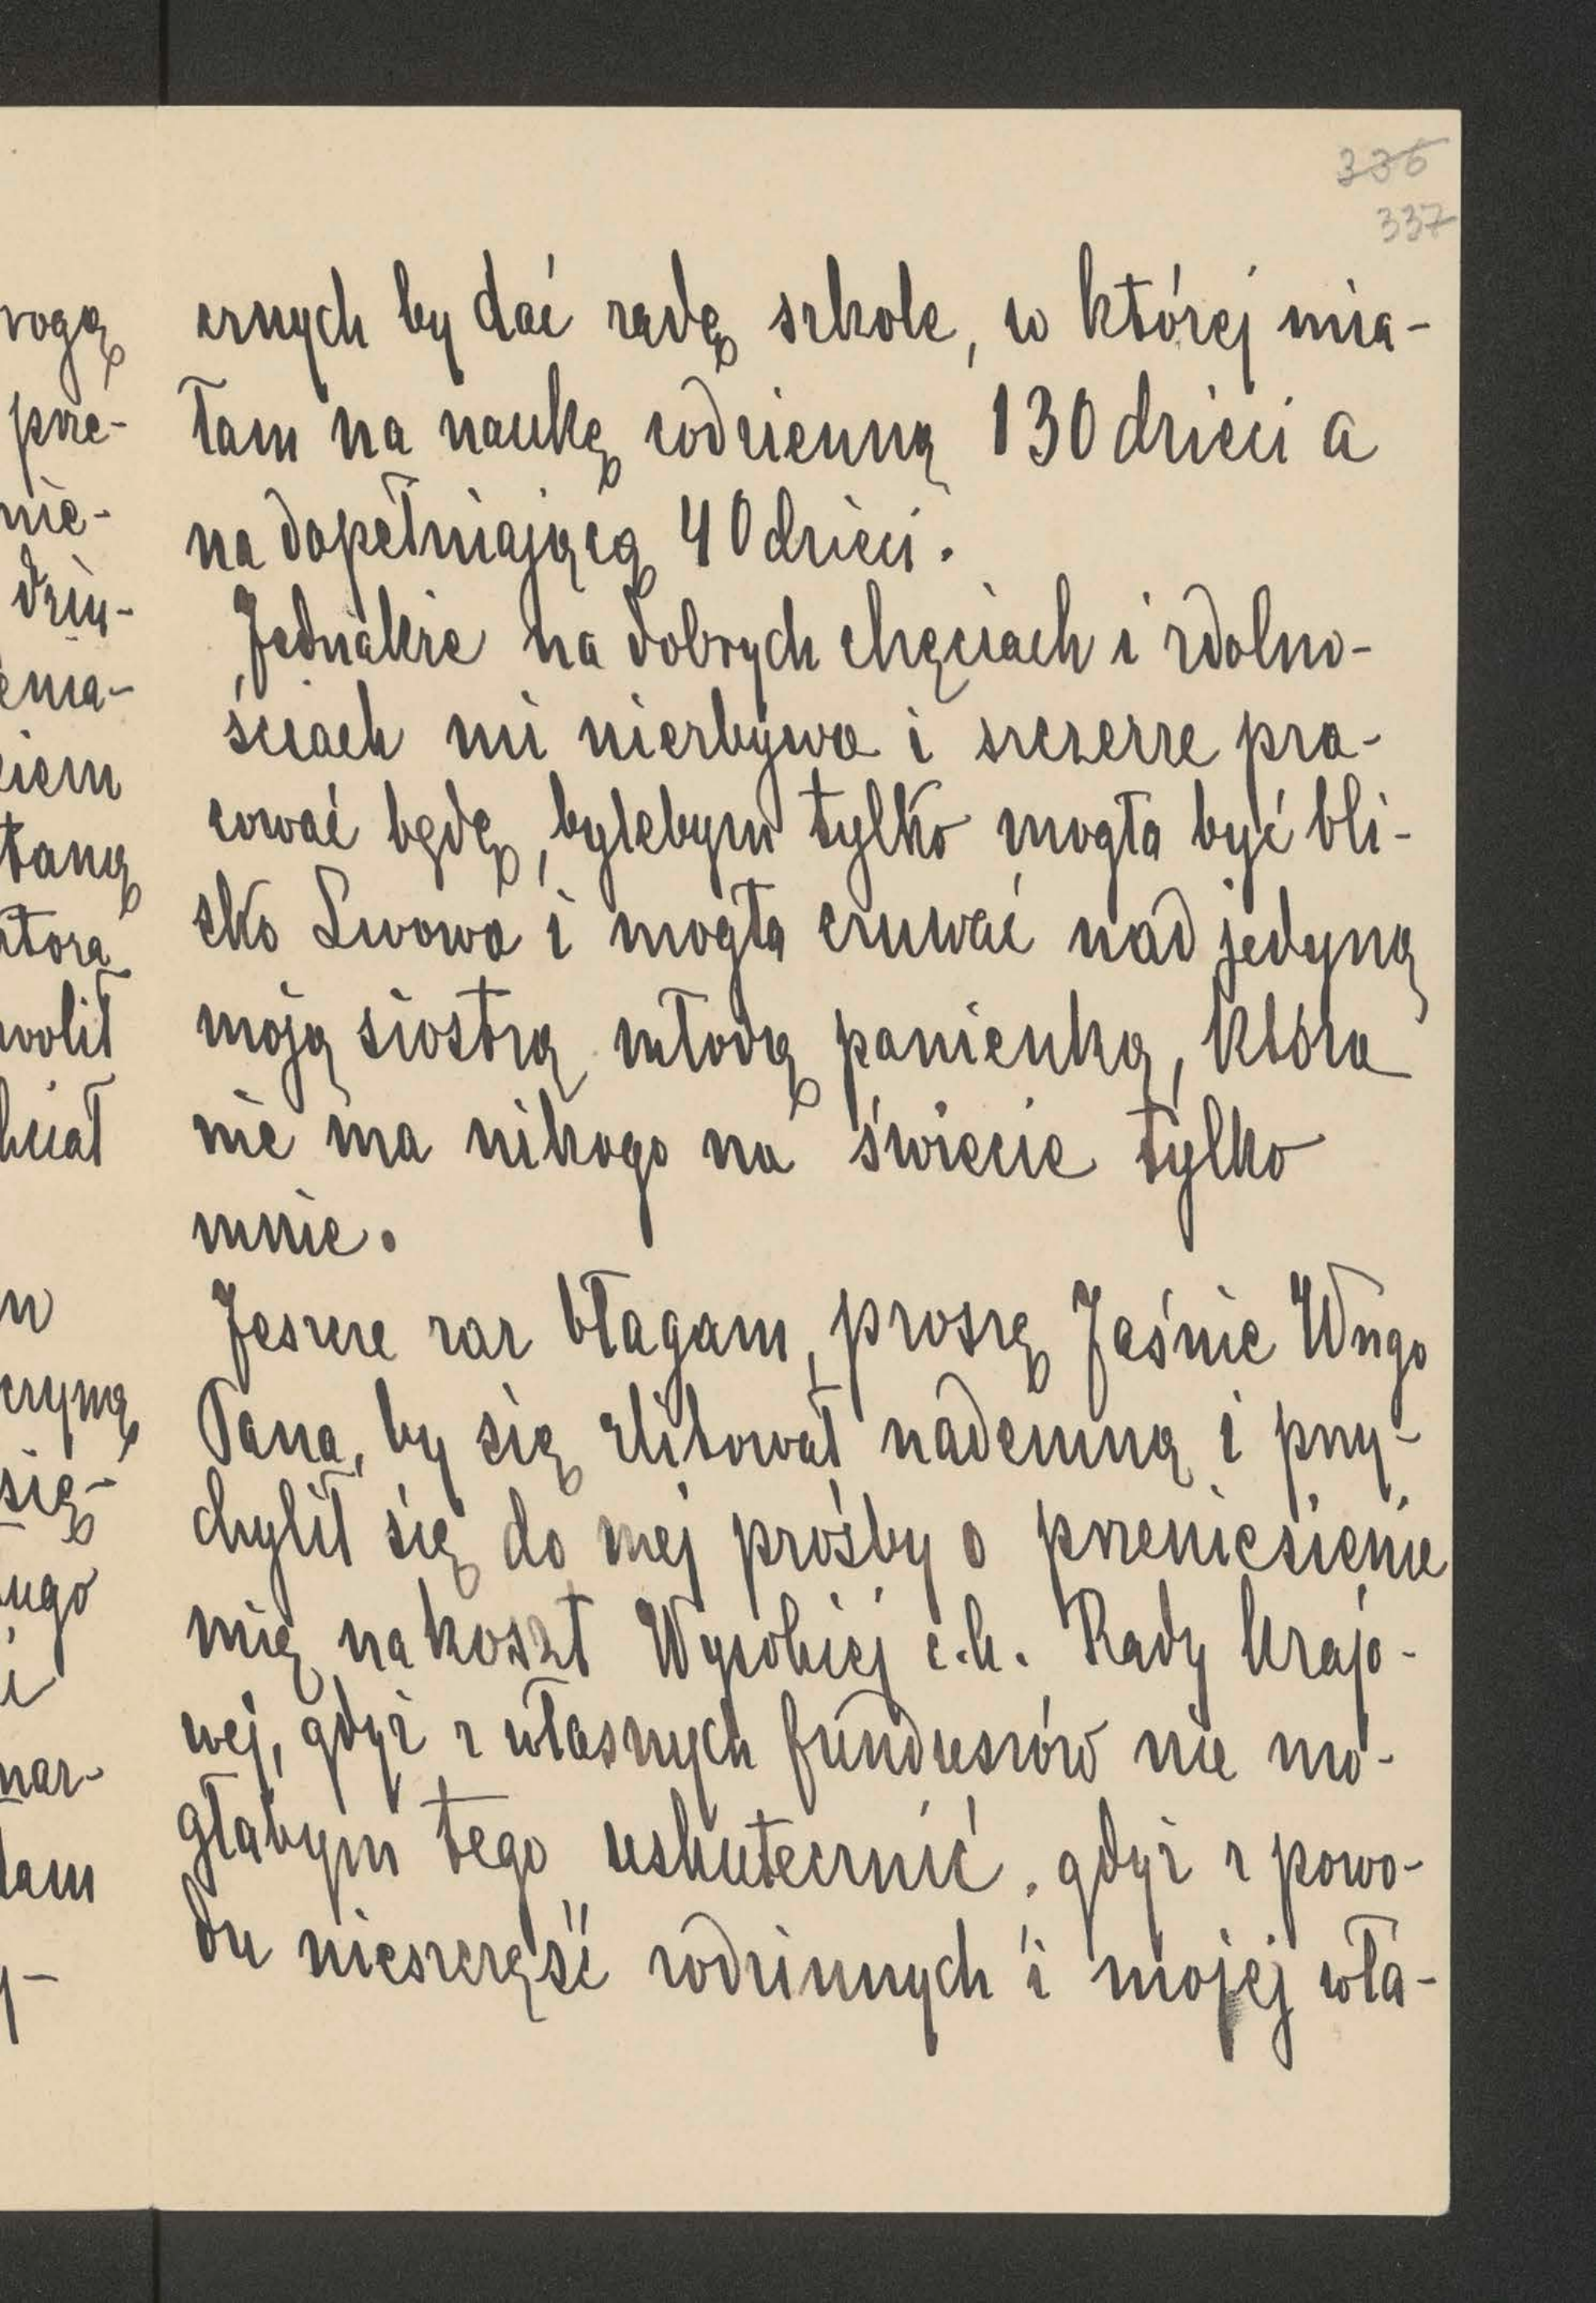 336
337
cznych by dać radę szkole, w której mia-
łam na naukę codzienną 130 dzieci a
na dopełniającą 40 dzieci.
Jednakże na dobrych chęciach i zdolno-
ściach mi niezbywa i szczerze pra-
cować będę, bylebym tylko mogła być bli-
sko Lwowa i mogła czuwać nad jedyną
moją siostrą młodą panienką, która
nie ma nikogo na świecie tylko
mnie.
Jeszcze raz błagam, proszę Jaśnie Wngo
Pana, by się zlitował nademną i przy-
chylił się do mej prośby o przeniesienie
mię na koszt Wysokiej c.k. Rady krajo-
wej, gdyż z własnych funduszów nie mo-
głabym tego uskutecznić, gdyż z powo-
du nieszczęść rodzinnych i mojej wła-
rogą
prze-
nie-
dzią-
ciem
taną
wolił
czyną
się-
ługo
i
nar-
łam